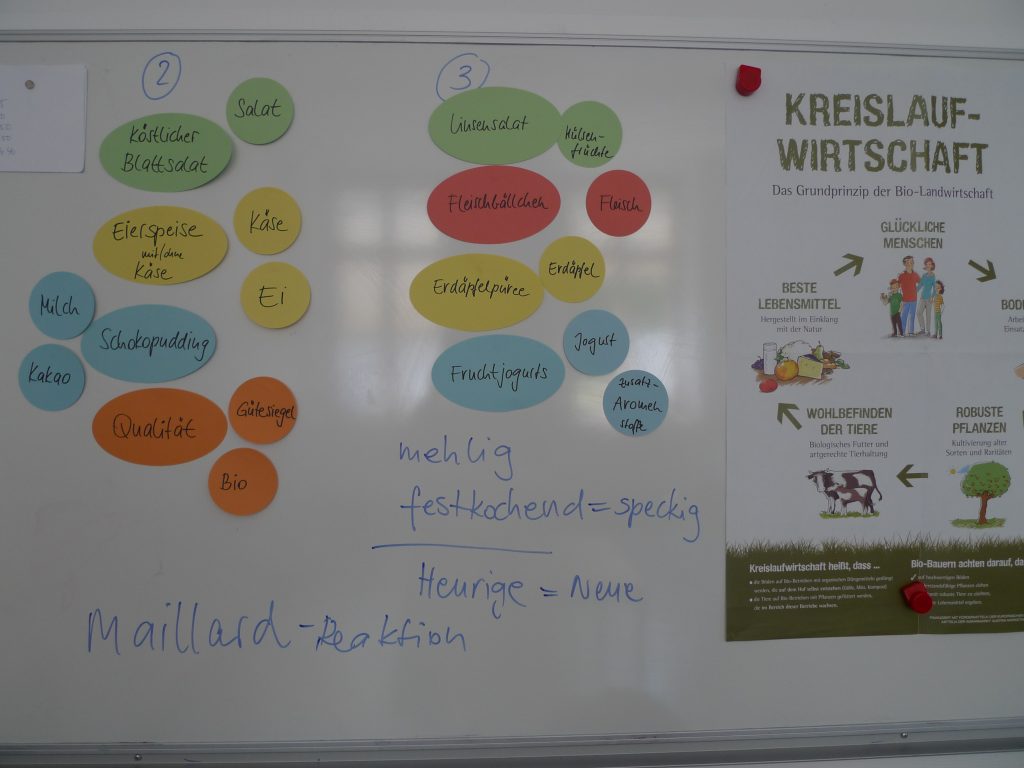 2
Salat
Köstlicher
Blattsalat
Eierspeise
mit/ohne
Käse
Käse
Ei
Milch
Schokopudding
Kakao
Qualität
Gütesiegel
Bio
3
Linsensalat
Hülsen-
früchte
Fleischbällchen
Fleisch
Erdäpfelpüree
Erdäpfel
Fruchtjogurts
Jogurt
Zusatz-
Aromen
stoffe
mehlig
festkochend = speckig
Heurige = Neue
Maillard-Reaktion
KREISLAUF-
WIRTSCHAFT
Das Grundprinzip der Bio-Landwirtschaft
GLÜCKLICHE
MENSCHEN
BESTE
LEBENSMITTEL
Hergestellt im Einklang
mit der Natur
WOHLBEFINDEN
DER TIERE
Biologisches Futter und
artgerechte Tierhaltung
ROBUSTE
PFLANZEN
Kultivierung alter
Sorten und Raritäten
Kreislaufwirtschaft heißt, dass ...
Bio-Bauern achten darauf, da